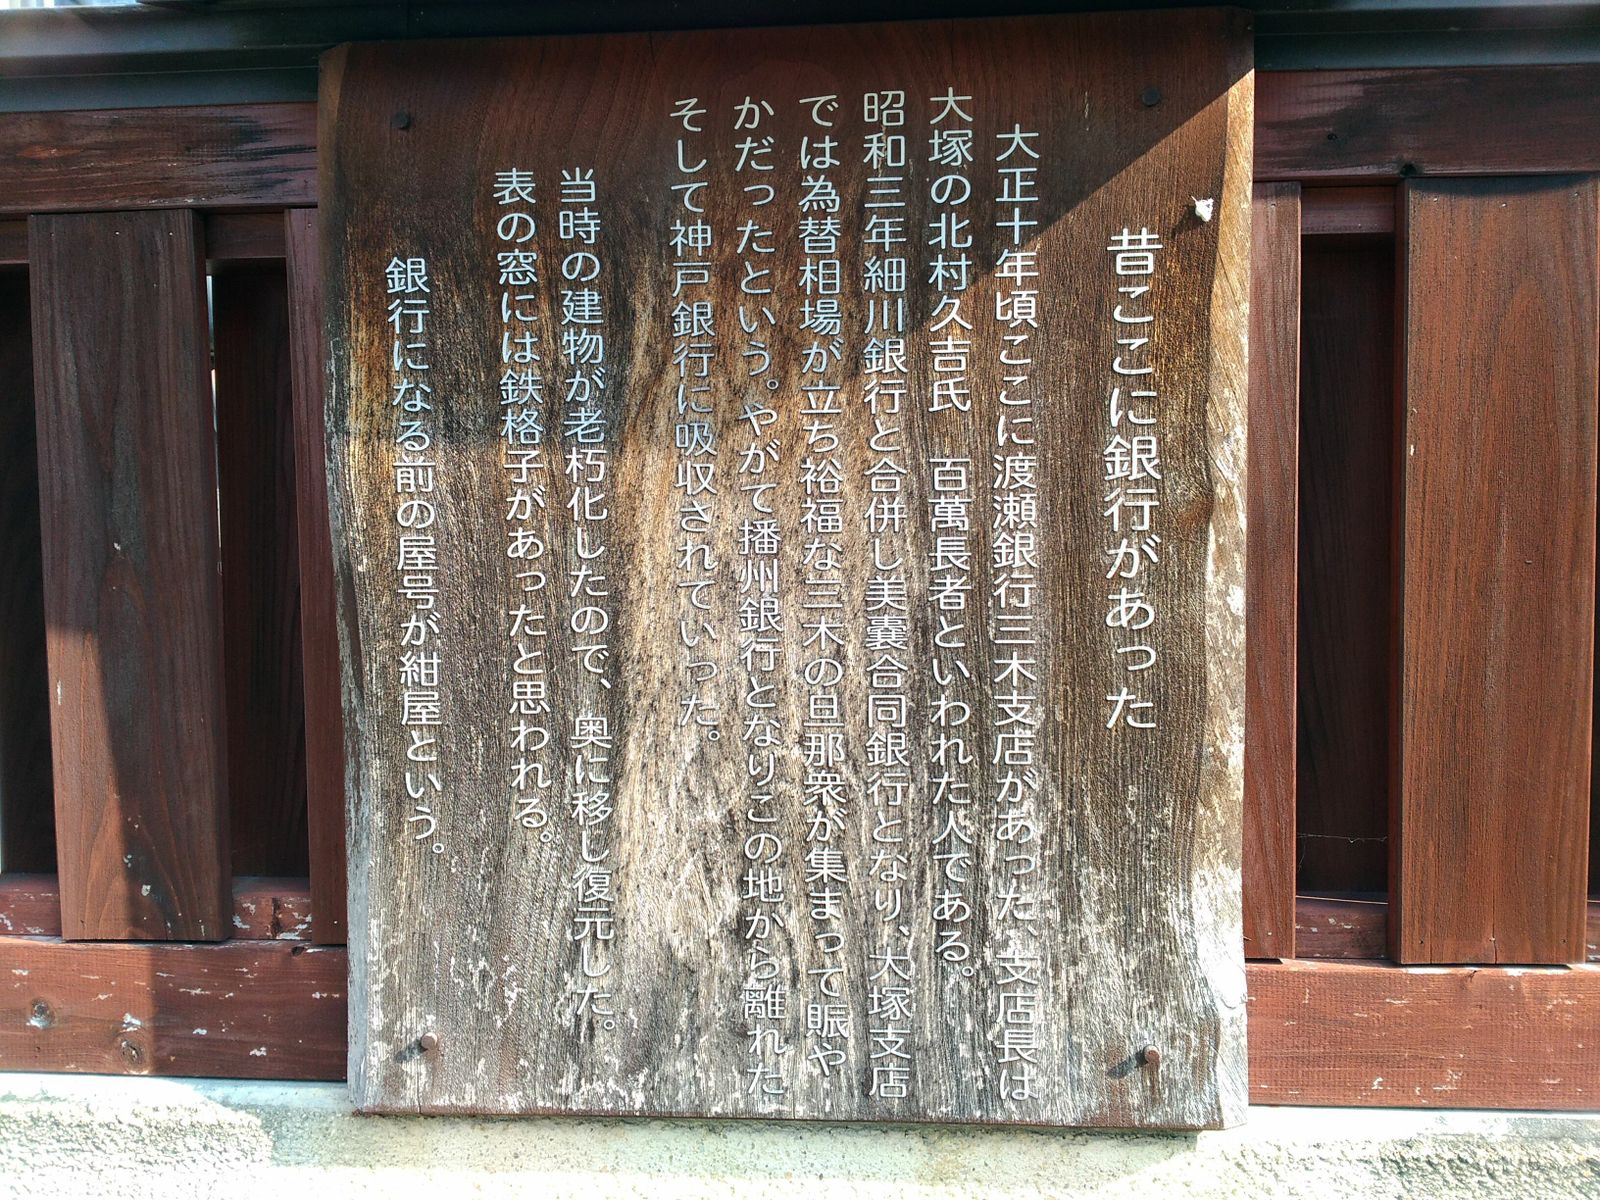 昔ここに銀行があった
大正十年頃ここに渡瀬銀行三木支店があった、支店長は
大塚の北村久吉氏　百萬長者といわれた人である。
昭和三年細川銀行と合併し美嚢合同銀行となり、大塚支店
では為替相場が立ち裕福な三木の旦那衆が集まって賑や
かだったという。やがて播州銀行となりこの地から離れた
そして神戸銀行に吸収されていった。
当時の建物が老朽化したので、奥に移し復元した。
表の窓には鉄格子があったと思われる。
銀行になる前の屋号が紺屋という。